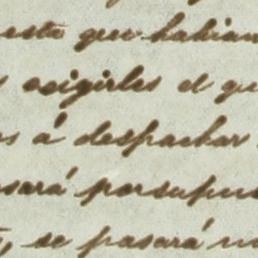 esta que habian
s exigirles el qu
os á despachar
sará porsupues
se pasará un